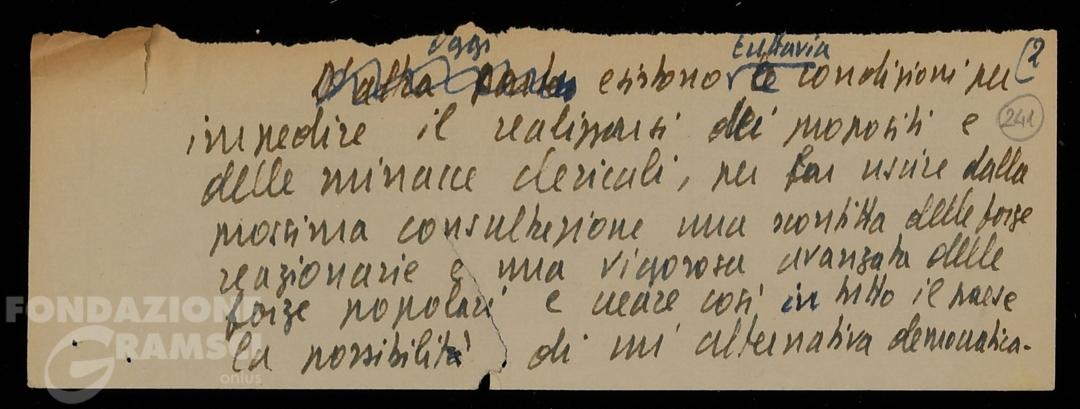 Oggi tuttavia (2
D'altra parte esistono le condizioni per
impedire il realizzarsi dei propositi e 241
delle minacce clericali, per far uscire dalla
prossima consultazione una sconfitta delle forze
reazionarie e una vigorosa avanzata delle
forze popolari e creare così in tutto il paese
la possibilità di un'alternativa democratica.
FONDAZIONE
GRAMSCI
onlus